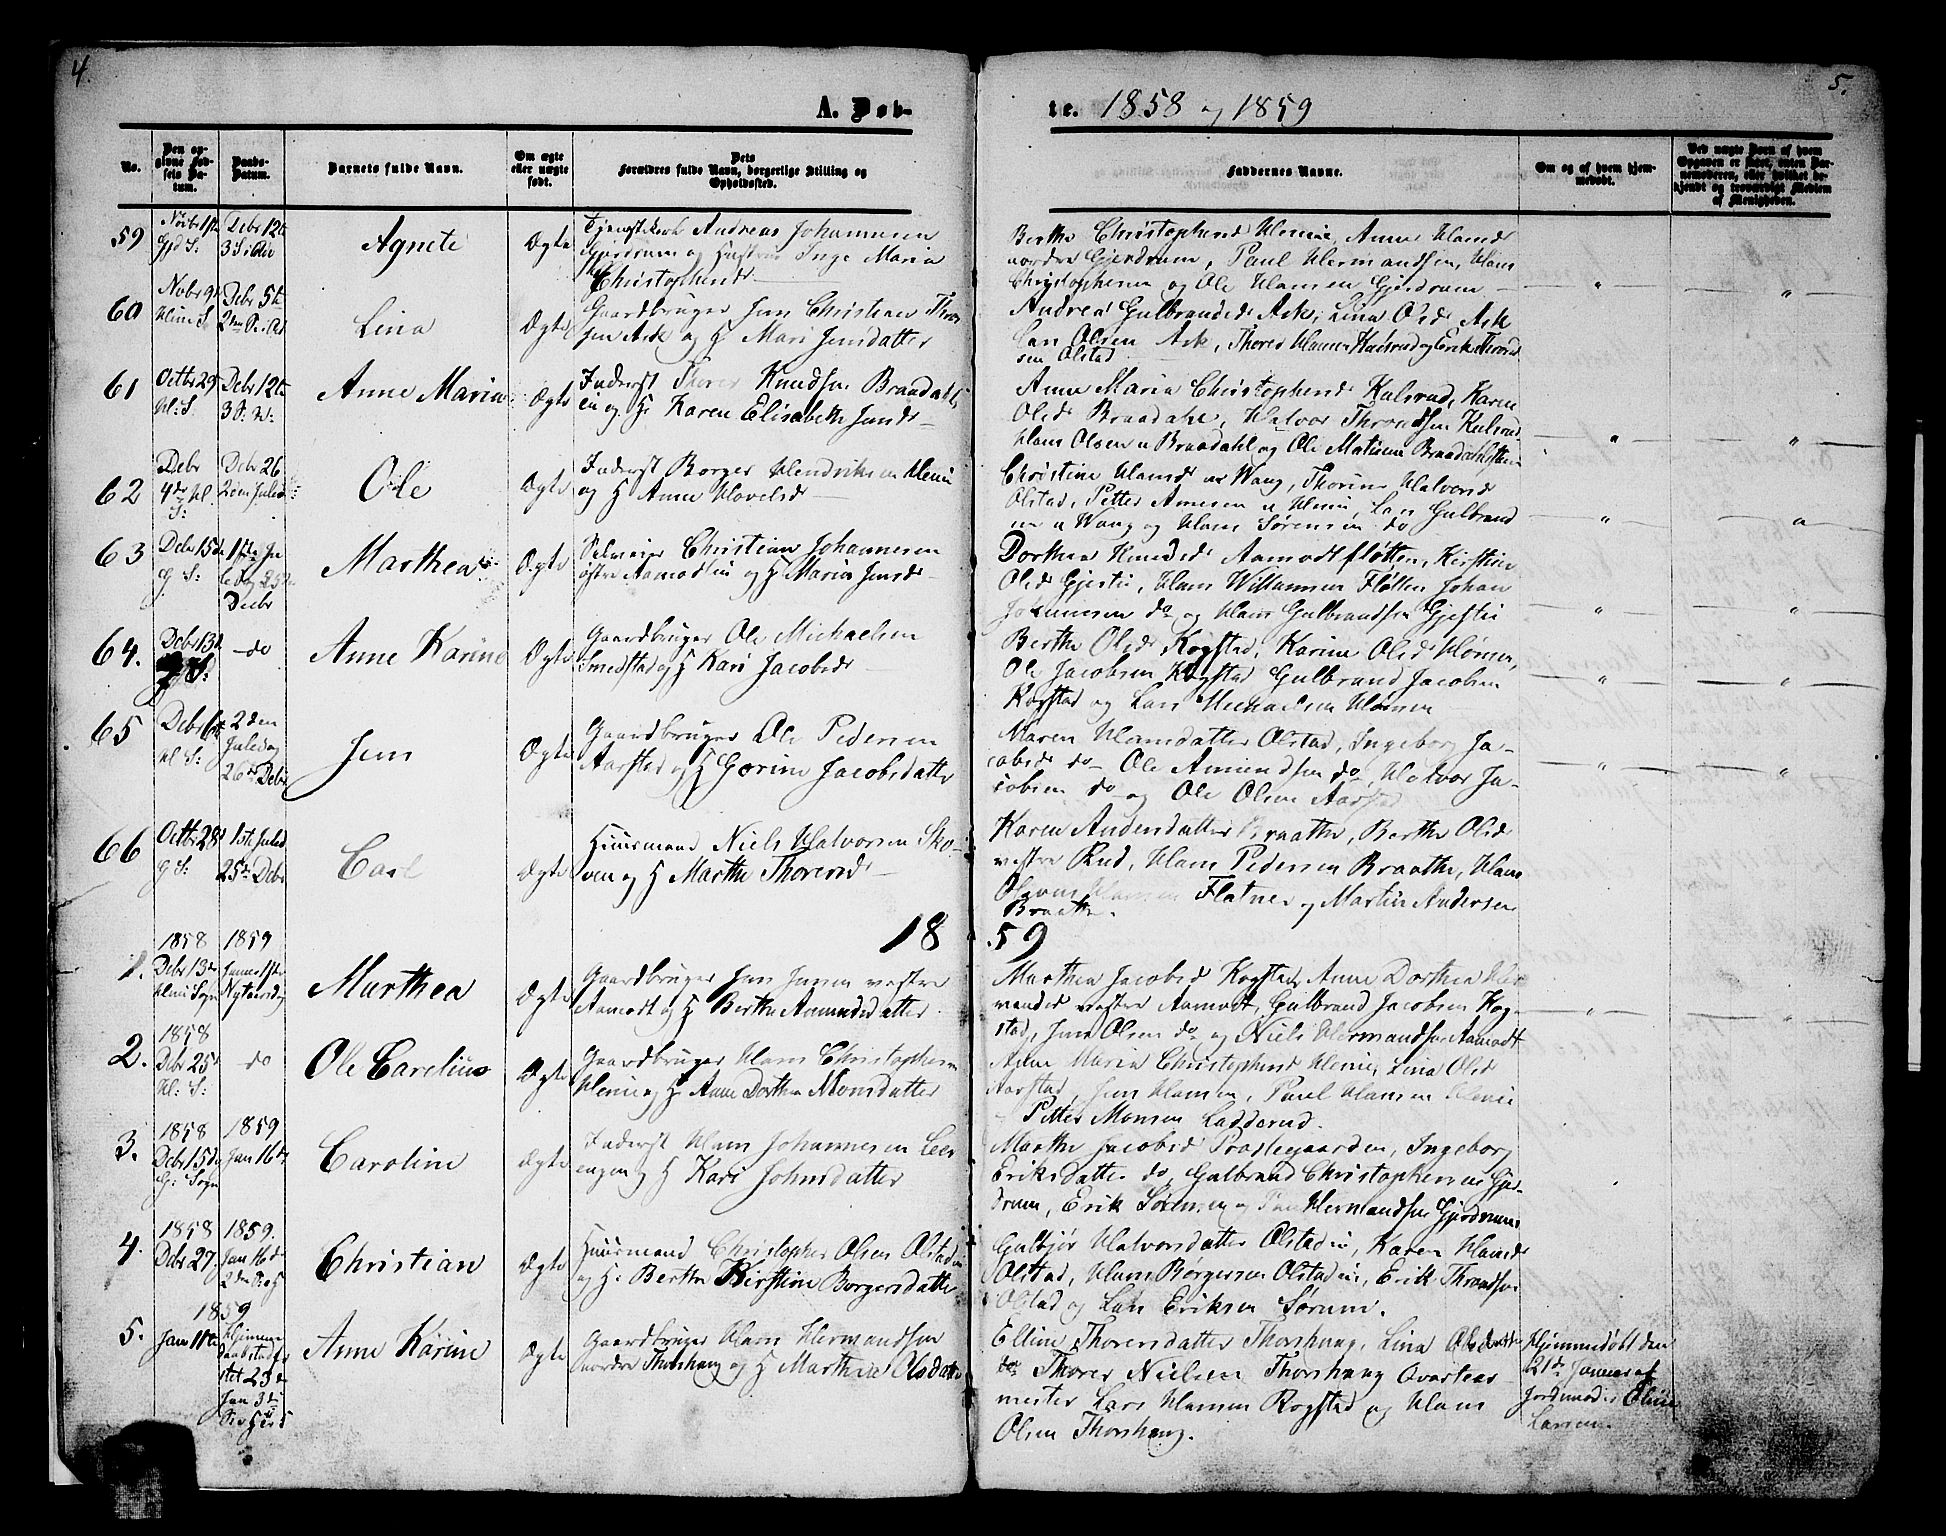 4.
5.
A. Døb-
te. 1858 og 1859
No.
Den op-
givne Fød-
sels Da-
tum.
Daabs-
Datum.
Barnets fulde Navn.
Om ægte
eller uægte
født.
Dets
Forældres fulde Navn, borgerlige Stilling og
Opholdssted.
Faddernes Navne.
Om og af hvem hjem-
medøbt.
Ved uægte Børn af hvem
Opgaven er skeet, enten Bar-
nemoderen, eller hvilket be-
kjendt og troværdigt Medlem
af Menigheden.
59
Agnete
Ægte
Andreas Johannesen
Gjerdrum og Hustrue Inge Maria
Christophersd
Berthe Christophersd Heni, Anne Hansd
nordre Gjerdrum, Paul Hermandsen, Hans
Christophersen og Ole Hansen Gjerdrum
60
Debr 5te
Lina
Ægte
Gaardbruger Jens Christian Thor
sen Ask og H Mari Jensdatter
Andrea Gulbrandsd Ask, Lina Olsd Ask
Lars Olsen Ask, Thorer Hansen Kulsrud og Erik Thored
sen Olstad
61
Octbr 29
Hl: S.
Debr 12te
3 S. A:
Anne Maria
Ægte
Inderst Thorer Knudsen Braadahls
ie og H: Karen Elisabeth Jensd
Anne Maria Christophersd Kulsrud, Karen
Olsd Braadahl, Halvor Throndsen Kulsrud
Hans Olsen u Braadahl og Ole Mathisen
62
Debr
4de Hl.
S:
Debr 26
2den Juled
Ole
Ægte
Inderst Borger Hendriksen Heni
og H Anne Hovelsd
Christine Hansd u Wang, Thorine Halvorsd
Olstad, Petter Arnesen u Heni, Lars Gulbrand
sen u Wang og Hans Sørensen do
63
Debr 15de
G. S:
1ste Ju
ledag 25de
Decbr
Marthea
Ægte
Selveier Christian Johannesen
østre Aamodt og H Maria Jensd
Dorthea Knudsd Aamodtfløtten, Kirstine
Olsd Gjestie, Hans Willumsen Fløtten Johan
Johannesen do og Hans Gulbrandsen Gjestie
64.
Debr 13de
do
Anne Karine
Ægte
Gaardbruger Ole Michaelsen
Smedstad og H Kari Jacobsd
Berthe Olsd Kogstad, Karine Olsd Hønsen,
Ole Jacobsen Kogstad Gulbrand Jacobsen
Kogstad og Lars Michaelsen Hønsen
65
Debr 6te
Hl S:
2den
Juledag
26de Debr
Jens
Ægte
Gaardbruger Ole Pedersen
Aarstad og H Gorine Jacobsdatter
Maren Hansdatter Olstad, Ingeborg Ja-
cobsd do Ole Amundsen do, Halvor Ja-
cobsen do og Ole Olsen Aarstad
66
Octbr 28
G S:
1ste Juled
25de Debr
Carl
Ægte
Huusmand Niels Halvorsen Sko-
ven og H Marthe Thorersd
Karen Andersdatter Braathe, Berthe Olsd
vestre Rud, Hans Pedersen Braathe, Hans
Olavus Hansen Flatner og Martin Andersen
Braathe.
1859
1.
1858
Debr 13de
Heni Sogn
1859
Januar 1ste
Nytaarsdg
Marthea
Ægte
Gaardbruger Jens Jensen vestre
Aamodt og H Berthe Amundsdatter
Marthea Jacobsd Kogstad, Anne Dorthea Her
mandsd vestre Aamodt, Gulbrand Jacobsen Kog-
stad, Jens Olsen do og Niels Hermandsen Aamodt
2.
1858
Debr 25de
Hl: S:
do
Ole Carelius
Ægte
Gaardbruger Hans Christophersen
Heni og H Anne Dorthea Monsdatter
Anne Maria Christophersd Heni, Lina Olsd
Aarstad, Jens Hansen, Paul Hansen Heni
Petter Monsen Ladderud.
3.
1858
Debr 15de
G: Sogn
1859
Jan 16de
Caroline
Ægte
Inderst Hans Johannesen Leer
engen og H Kari Johnsdatter
Marthe Jacobsd Præstegaarden, Ingeborg
Eriksdatter do, Gulbrand Christophersen Gjer-
drum, Erik Sørensen og Paul Hermandsen Gjerdrum
4.
1858
Debr 27.
1859.
Jan 16de
Christian
Ægte
Huusmand Christopher Olsen Olstad
og H: Berthe Kirstine Borgersdatter
Gulbjør Halvorsdatter Olstad, Karen Hansd
Olstad, Hans Børgersen Olstad, Erik Throndsen
Olstad og Lars Eriksen Sørum.
5.
1859
Jan 11te
Hjemme
daabstadfæ
stet 23de
Jan 3die
Anne Karine
Ægte
Gaardbruger Hans Hermandsen
nordre Thorshaug og H Marthea Olsdatter
Elline Thorersdatter Thorshaug, Lina Olsdatter
do Thorer Nielsen Thorshaug Qvarteer
mester Lars Hansen Rogstad og Hans
Olsen Thorshaug.
Hjemmedøbt den
21de Januar af
Jordmoder Eline
Larsen